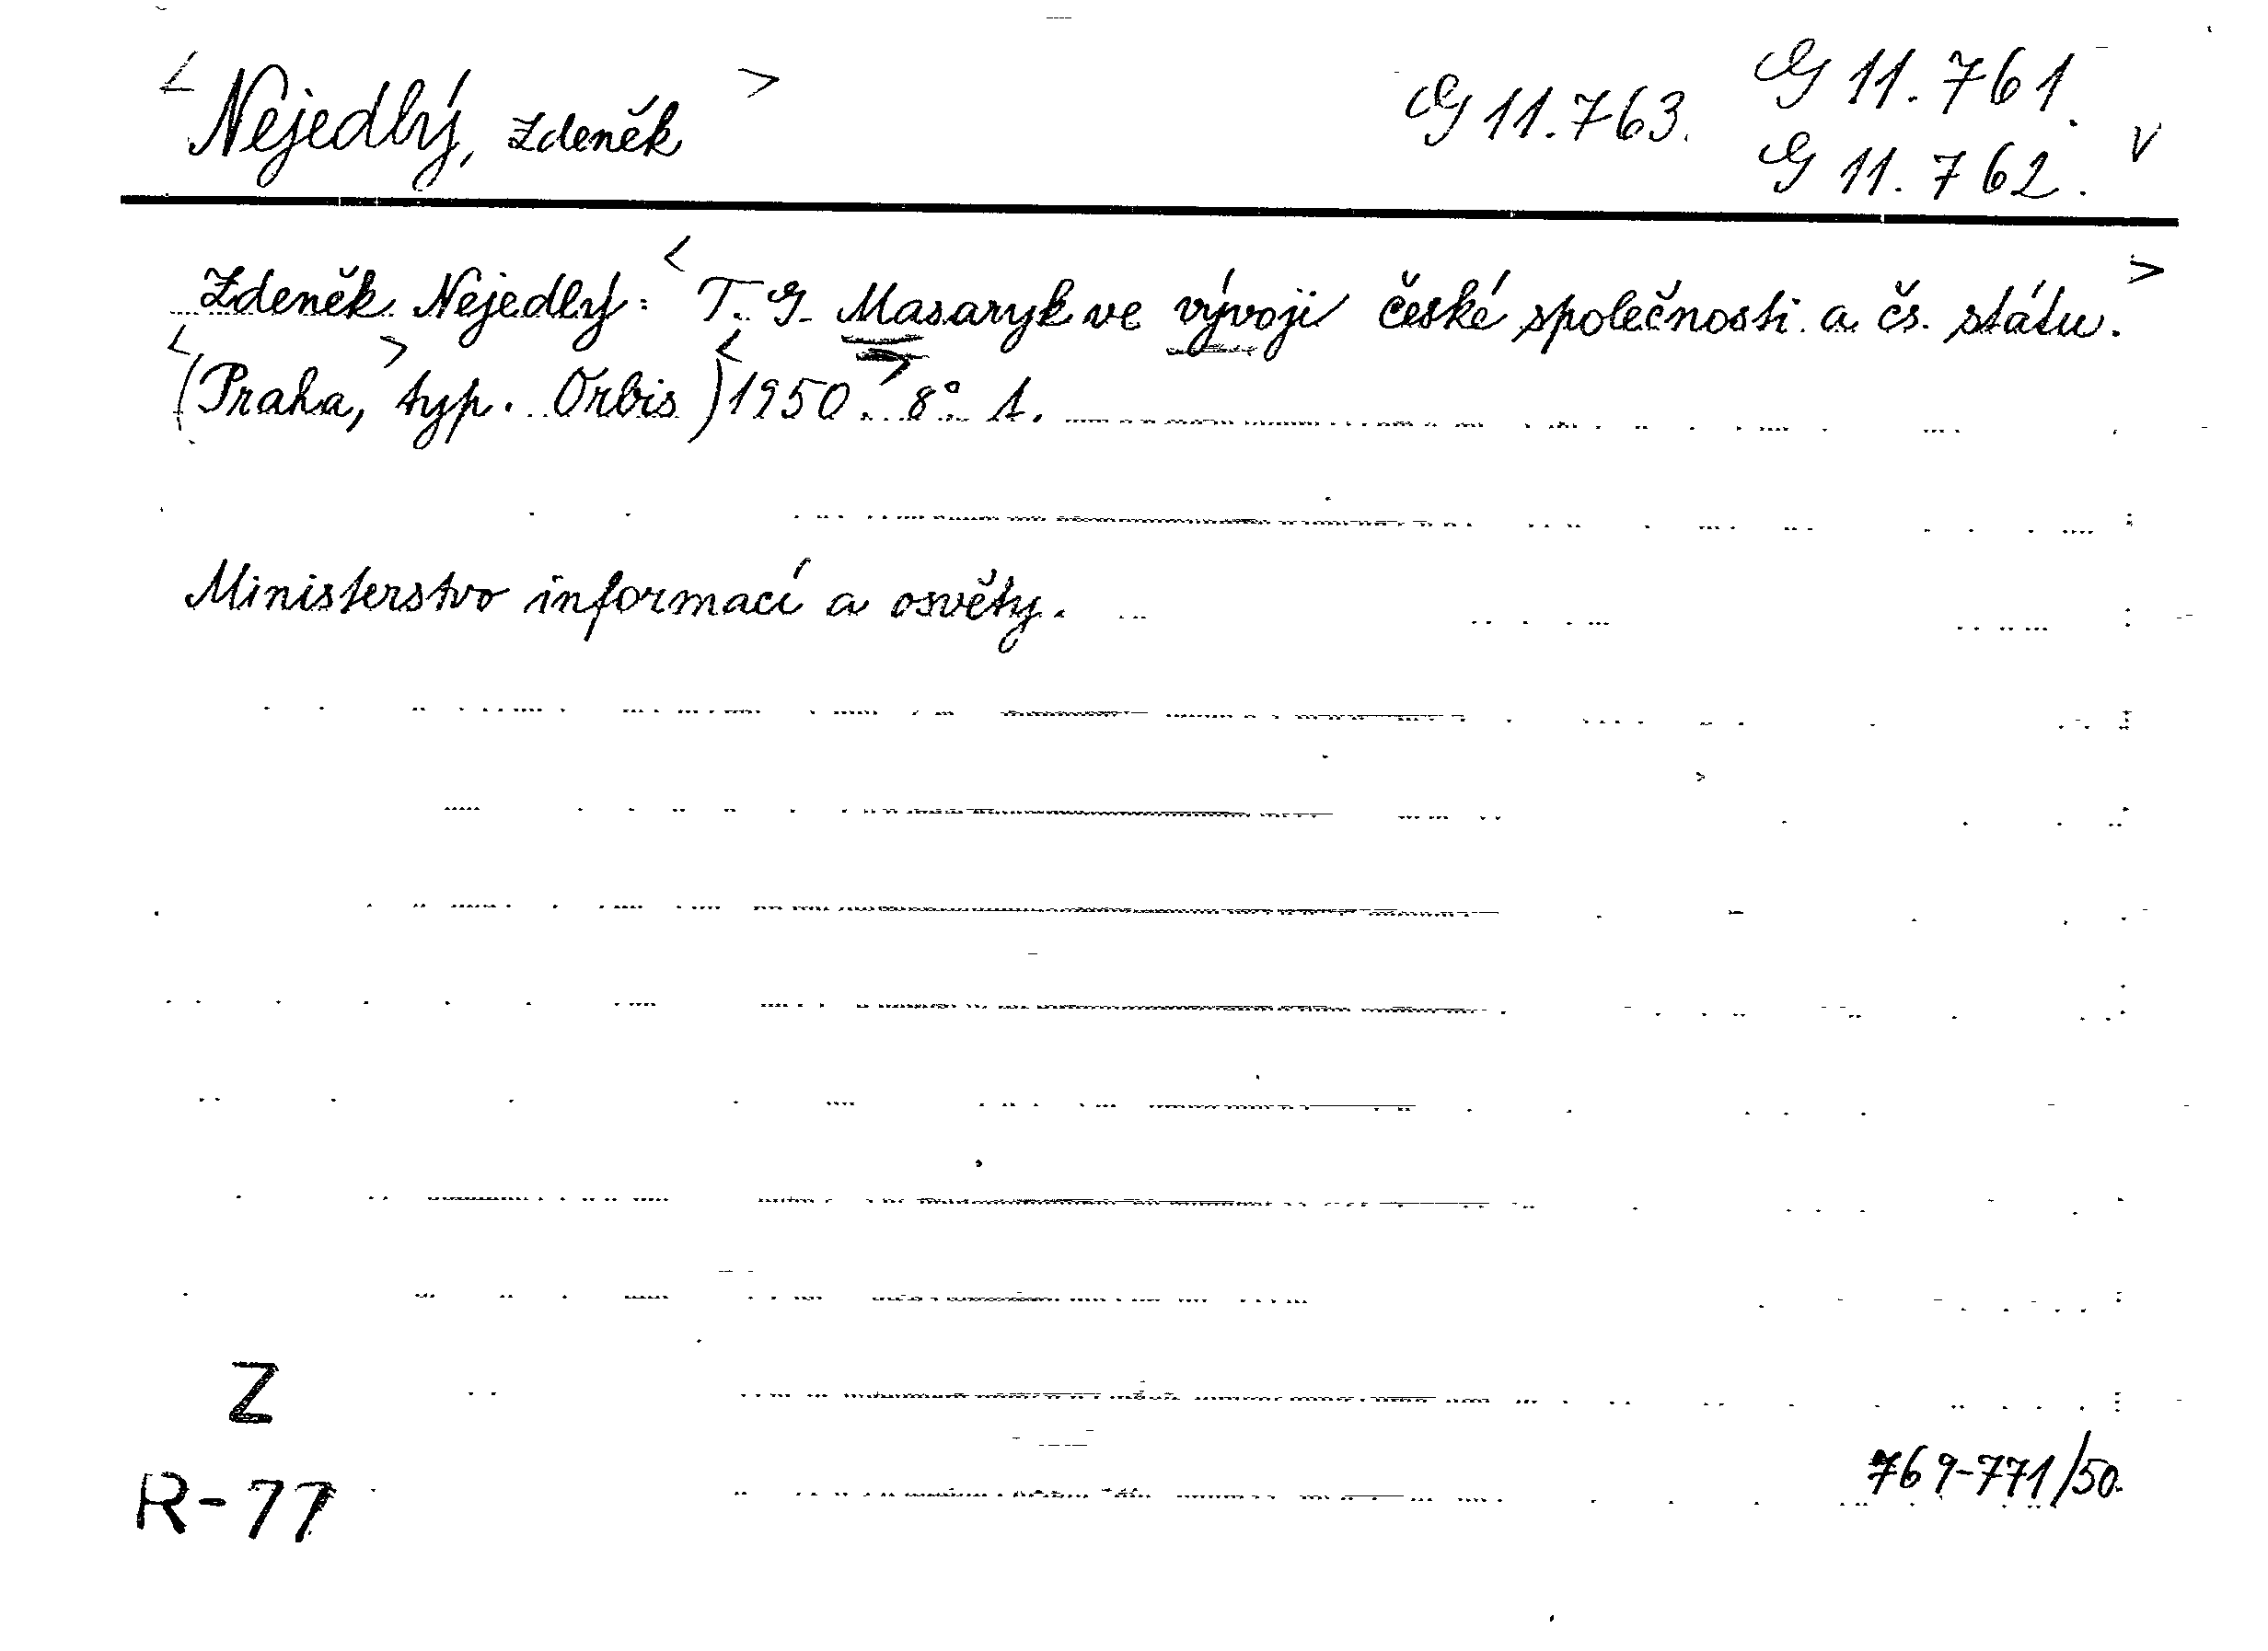 < Nejedlý, Zdeněk > G 11.763. G 11.761.
G 11.762. V
Zdeněk Nejedlý: < T. G. Masaryk ve vývoji české společnosti a čs. státu. >
<(Praha,> typ. Orbis)<1950.> 8° 1.
Ministerstvo informací a osvěty.
Z
R-77
769-771/50.